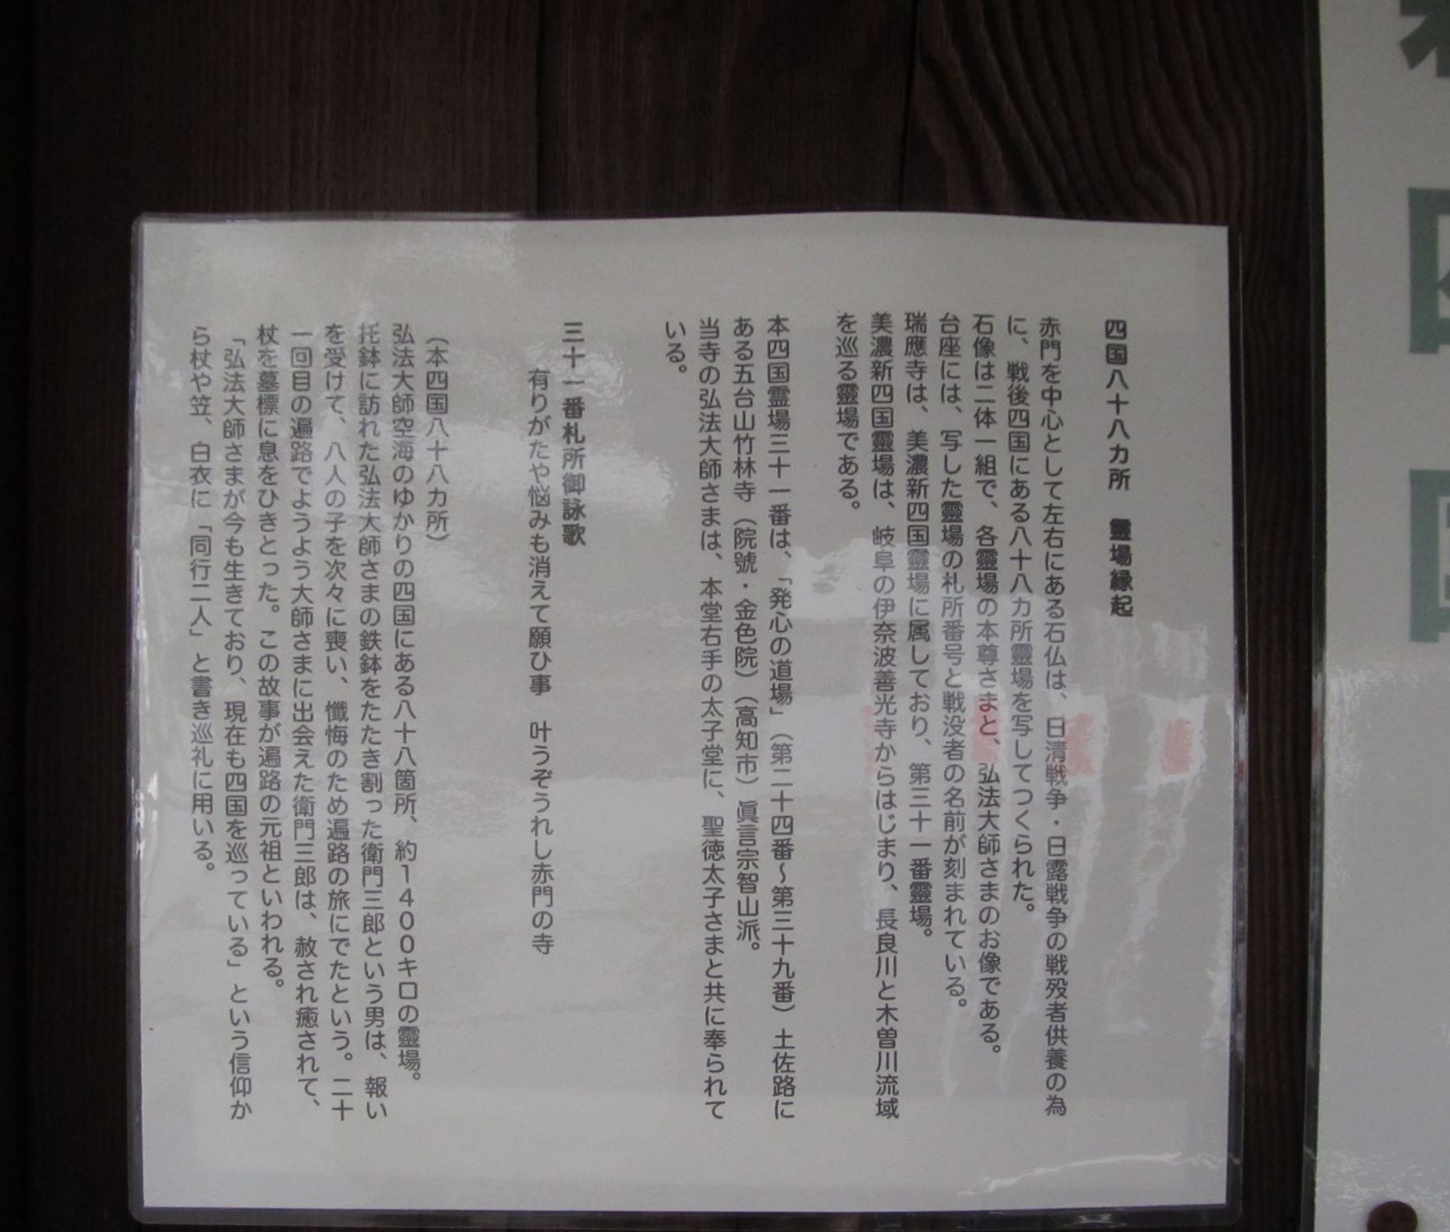 四国八十八カ所　靈場縁起
赤門を中心として左右にある石仏は、日清戦争・日露戦争の戦歿者供養の為
に、戦後四国にある八十八カ所靈場を写してつくられた。
石像は二体一組で、各靈場の本尊さまと、弘法大師さまのお像である。
台座には、写した靈場の札所番号と戦没者の名前が刻まれている。
瑞應寺は、美濃新四国靈場に属しており、第三十一番靈場。
美濃新四国靈場は、岐阜の伊奈波善光寺からはじまり、長良川と木曽川流域
を巡る靈場である。
本四国霊場三十一番は、「発心の道場」（第二十四番～第三十九番）土佐路に
ある五台山竹林寺（院號・金色院）（高知市）眞言宗智山派。
当寺の弘法大師さまは、本堂右手の太子堂に、聖徳太子さまと共に奉られて
いる。
三十一番札所御詠歌
有りがたや悩みも消えて願ひ事　叶うぞうれし赤門の寺
（本四国八十八カ所）
弘法大師空海のゆかりの四国にある八十八箇所、約１４００キロの靈場。
托鉢に訪れた弘法大師さまの鉄鉢をたたき割った衛門三郎という男は、報い
を受けて、八人の子を次々に喪い、懺悔のため遍路の旅にでたという。二十
一回目の遍路でようよう大師さまに出会えた衛門三郎は、赦され癒されて、
杖を墓標に息をひきとった。この故事が遍路の元祖といわれる。
「弘法大師さまが今も生きており、現在も四国を巡っている」という信仰か
ら杖や笠、白衣に「同行二人」と書き巡礼に用いる。